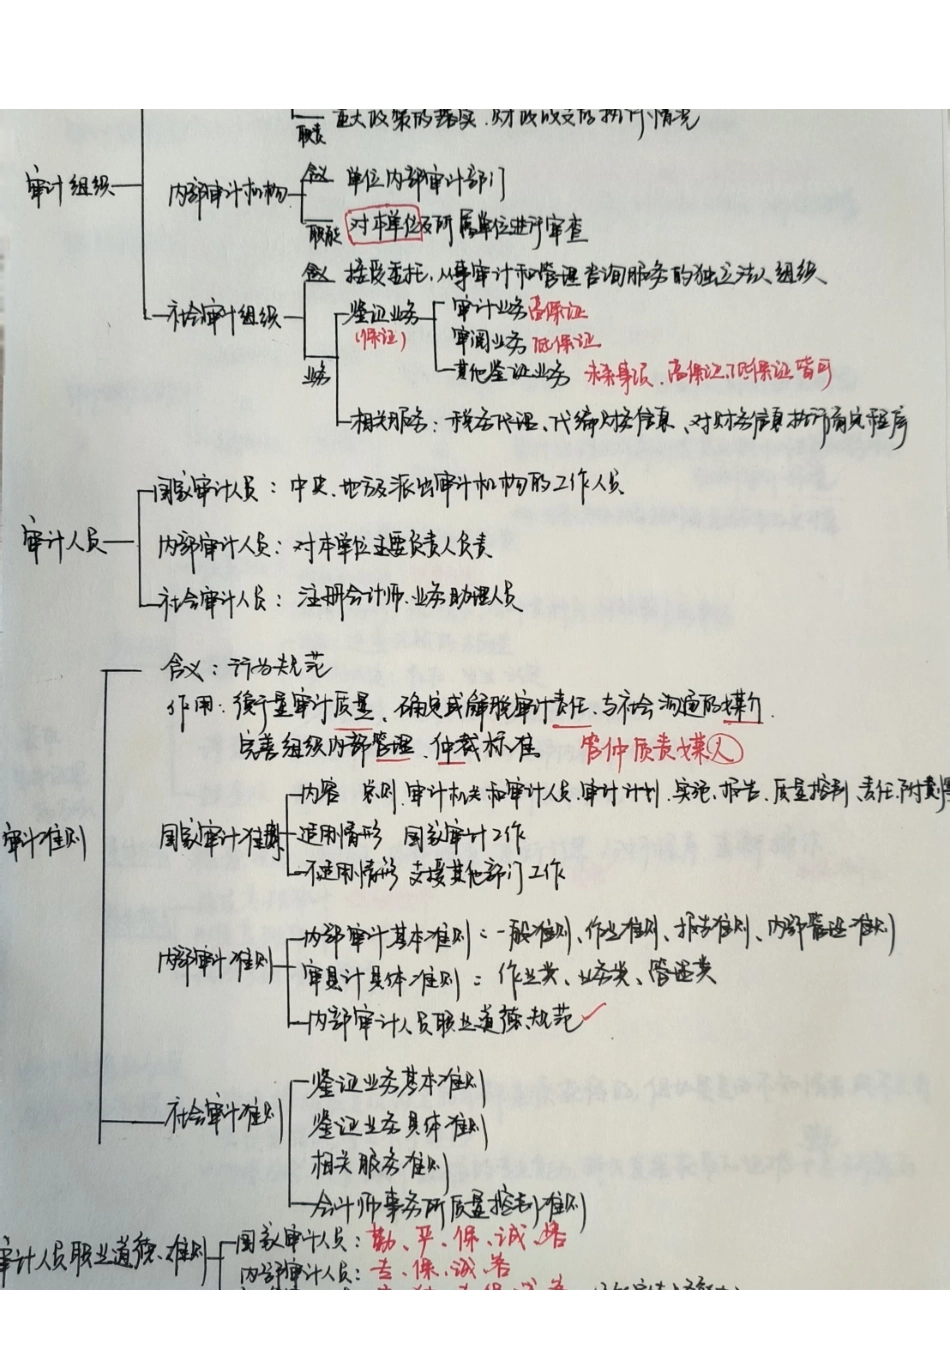 职责 重大政策的落实、财政收支的执行情况
审计组织
内部审计机构
含义 单位内部审计部门
职责 对本单位及所属单位进行审查
社会审计组织
含义 接受委托,从事审计和管理咨询服务的独立法人组织
业务
鉴证业务 (保证)
审计业务 高保证
审阅业务 低保证
其他鉴证业务 高保证、低保证皆可
相关服务:税务代理、代编财务信息、对财务信息执行商定程序
审计人员
国家审计人员:中央、地方及派出审计机构的工作人员
内部审计人员:对本单位主要负责人负责
社会审计人员:注册会计师、业务助理人员
审计准则
含义:行为规范
作用:衡量审计质量、确定或解脱审计责任、与社会沟通的媒介
完善组织内部管理、仲裁标准 管仲质责媒人
国家审计准则
内容 总则、审计机关和审计人员、审计计划、实施、报告、质量控制、责任、附则
适用情形 国家审计工作
不适用情形 支援其他部门工作
内部审计准则
内部审计基本准则:一般准则、作业准则、报告准则、内部管理准则
审计具体准则:作业类、业务类、管理类
内部审计人员职业道德规范
社会审计准则
鉴证业务基本准则
鉴证业务具体准则
相关服务准则
会计师事务所质量控制准则
审计人员职业道德准则
国家审计人员:勤、平、保、诚、客
内部审计人员:专、保、诚、客